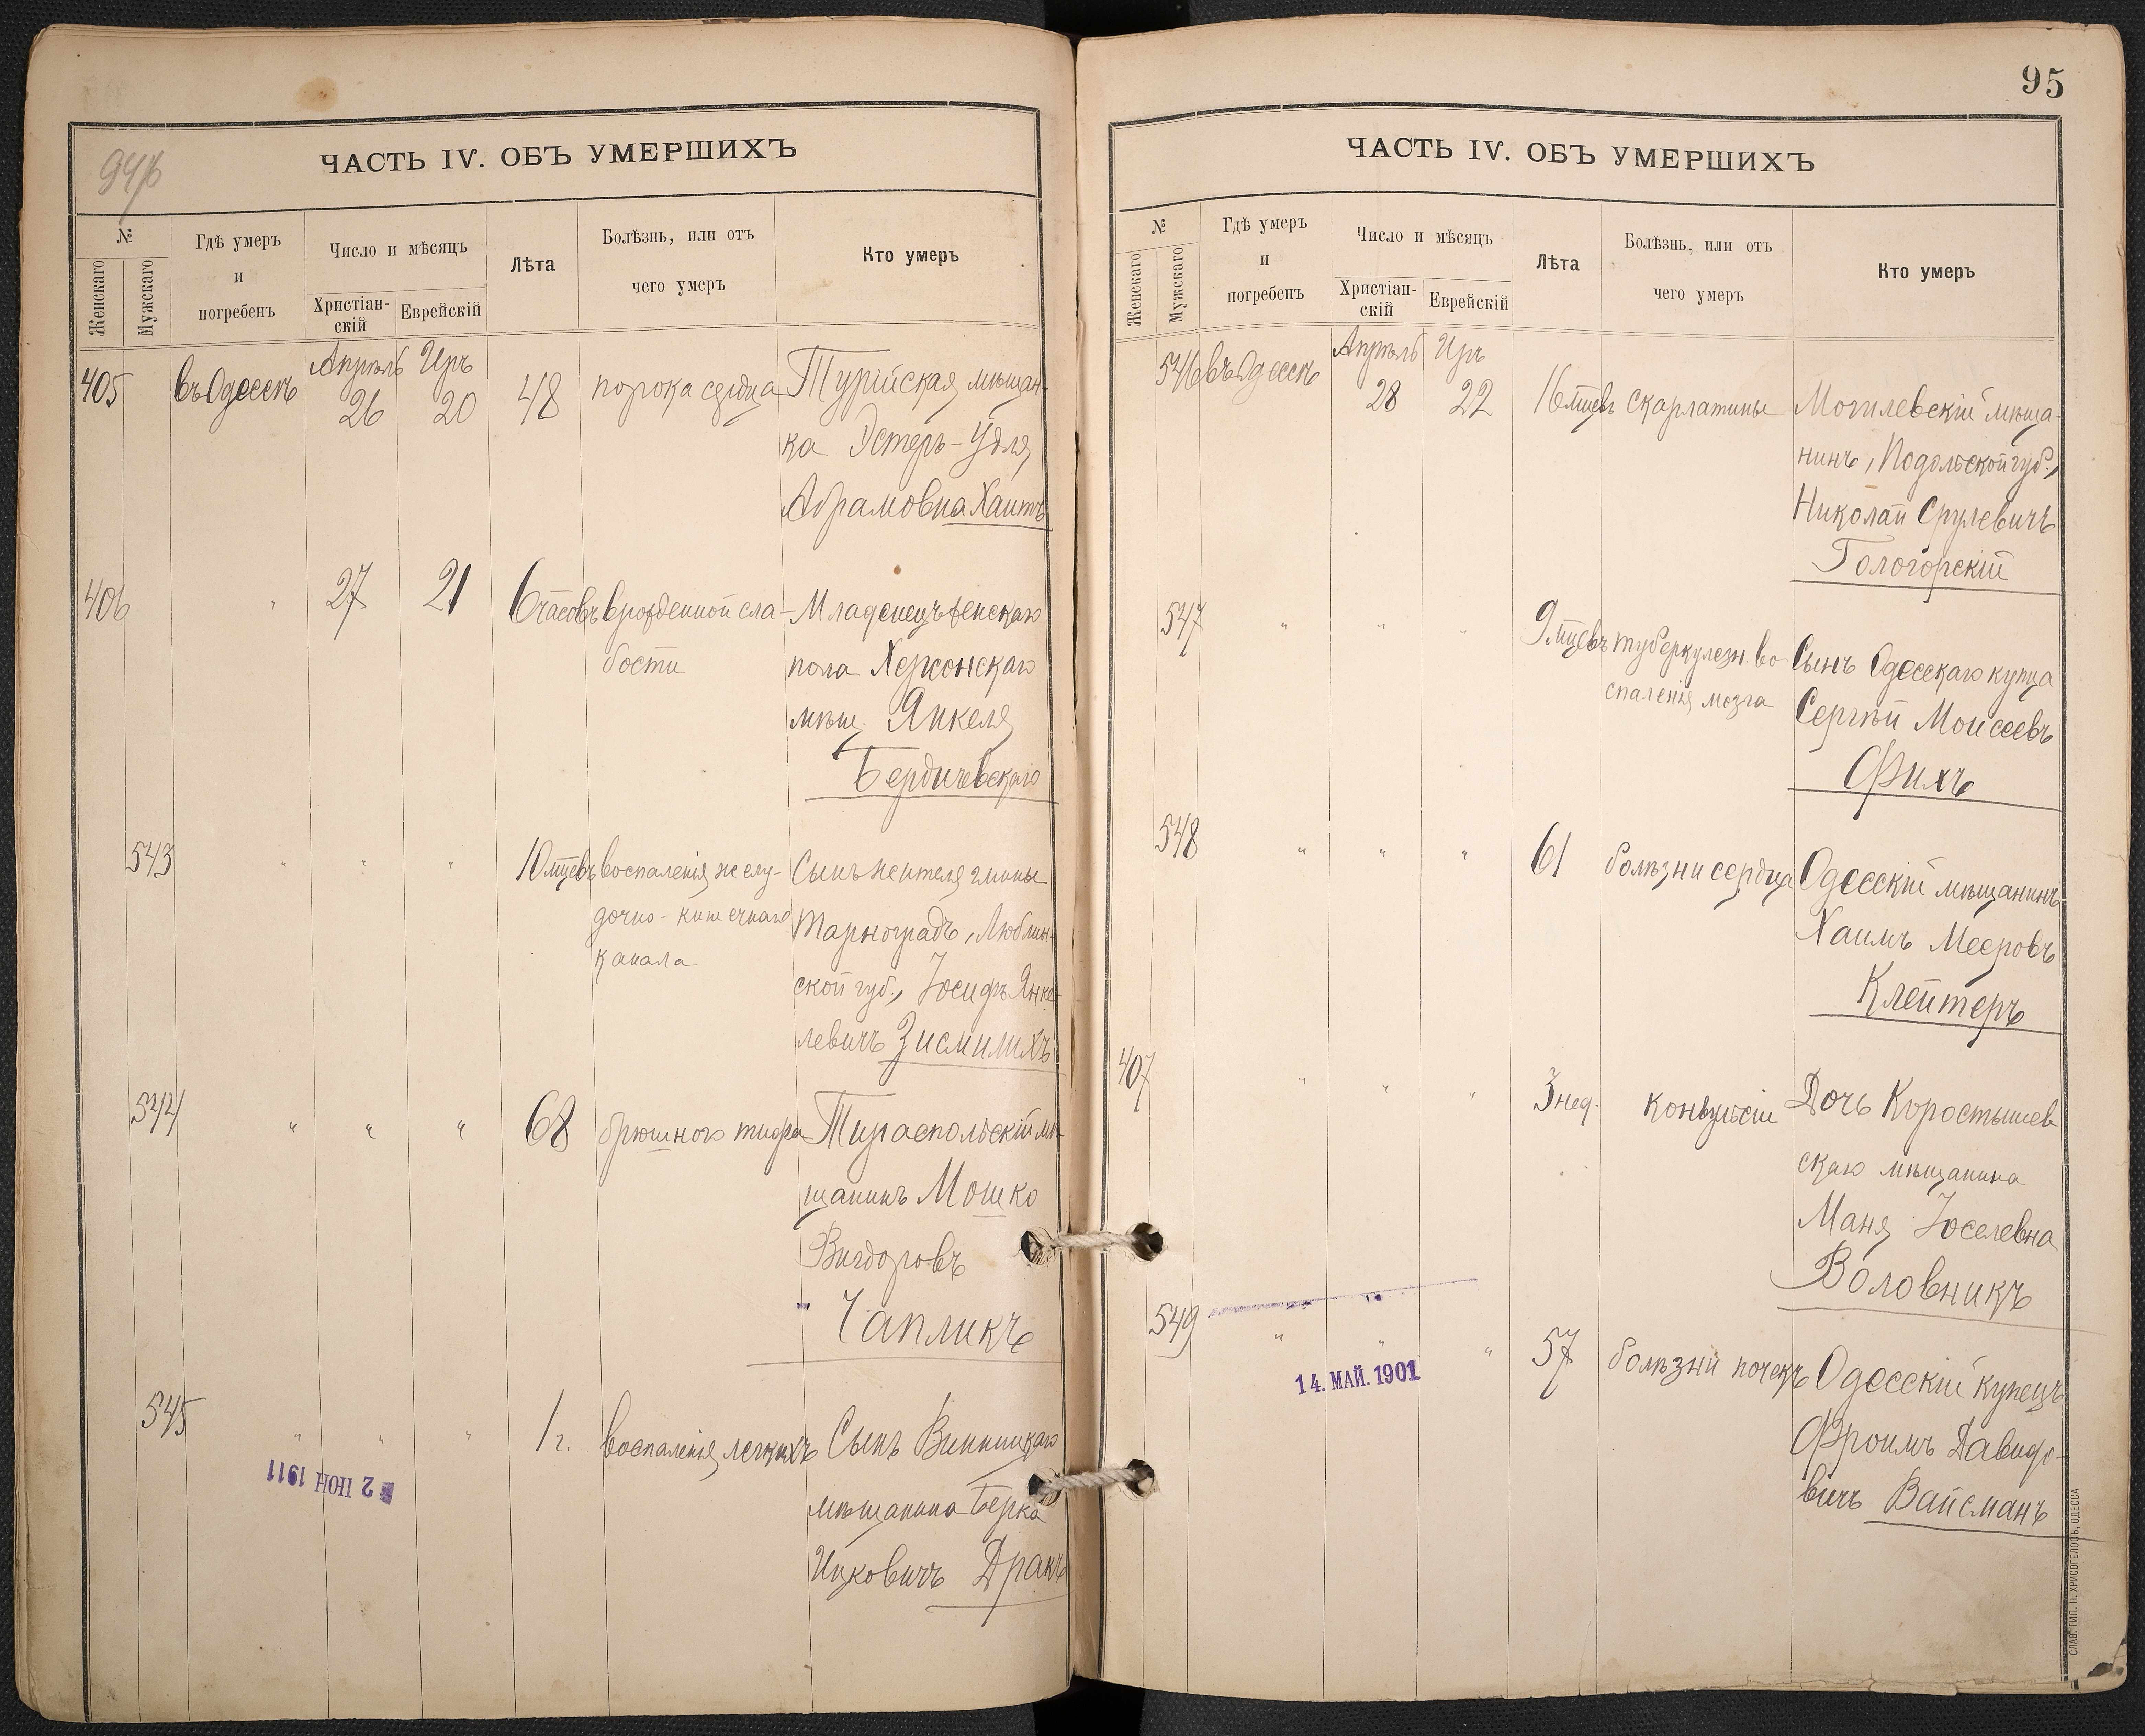 ЧАСТЬ IV. ОБЪ УМЕРШИХЪ
№
Женскаго
Мужскаго
Гдѣ умеръ
и
погребенъ
Число и мѣсяцъ
Христіан-
скій
Еврейскій
Лѣта
Болѣзнь, или отъ
чего умеръ
Кто умеръ
405
въ Одессѣ
Апрѣль
26
Иръ
20
48
порока сердца
Турійская мѣщан-
ка Эстеръ-Удля
Абрамовна Хаитъ
406
"
27
21
6 часовъ
врожденной сла-
бости
Младенецъ женскаго
пола Херсонскаго
мѣщ. Янкеля
Бердичевскаго
543
"
"
"
10 мцевъ
воспаленія желу-
дочно-кишечнаго
канала
Сынъ жителя гмины
Тарноградъ, Люблин-
ской губ., Іосифъ Янке-
левичъ Зисмилихъ
544
"
"
"
68
брюшного тифа
Тираспольскій мѣ-
щанинъ Мошко
Вигдоровъ
Чапликъ
545
"
"
"
1 г.
воспаленія легкихъ
Сынъ Винницкаго
мѣщанина Берка
Ицковичъ Дракъ
2 ІЮН 1911
95
ЧАСТЬ IV. ОБЪ УМЕРШИХЪ
№
Женскаго
Мужскаго
Гдѣ умеръ
и
погребенъ
Число и мѣсяцъ
Христіан-
скій
Еврейскій
Лѣта
Болѣзнь, или отъ
чего умеръ
Кто умеръ
546
въ Одессѣ
Апрѣль
28
Иръ
22
16 мцевъ
скарлатины
Могилевскій мѣща-
нинъ, Подольской губ.,
Николай Срулевичъ
Гологорскій
547
"
"
"
9 мцевъ
туберкулезн. во-
спаленія мозга
Сынъ Одесскаго купца
Сергѣй Моисеевъ
Фихъ
548
"
"
"
61
болѣзни сердца
Одесскій мѣщанинъ
Хаимъ Мееровъ
Клейтеръ
407
"
"
"
3 нед.
конвульсіи
Дочь Коростышев
скаго мѣщанина
Маня Іоселевна
Воловникъ
549
"
"
"
57
болѣзни почекъ
Одесскій купецъ
Фроимъ Давидо-
вичъ Вайсманъ
14. МАЙ. 1901
СЛАВ. ТИП. Н. ХРИСОГЕЛОСЪ, ОДЕССА